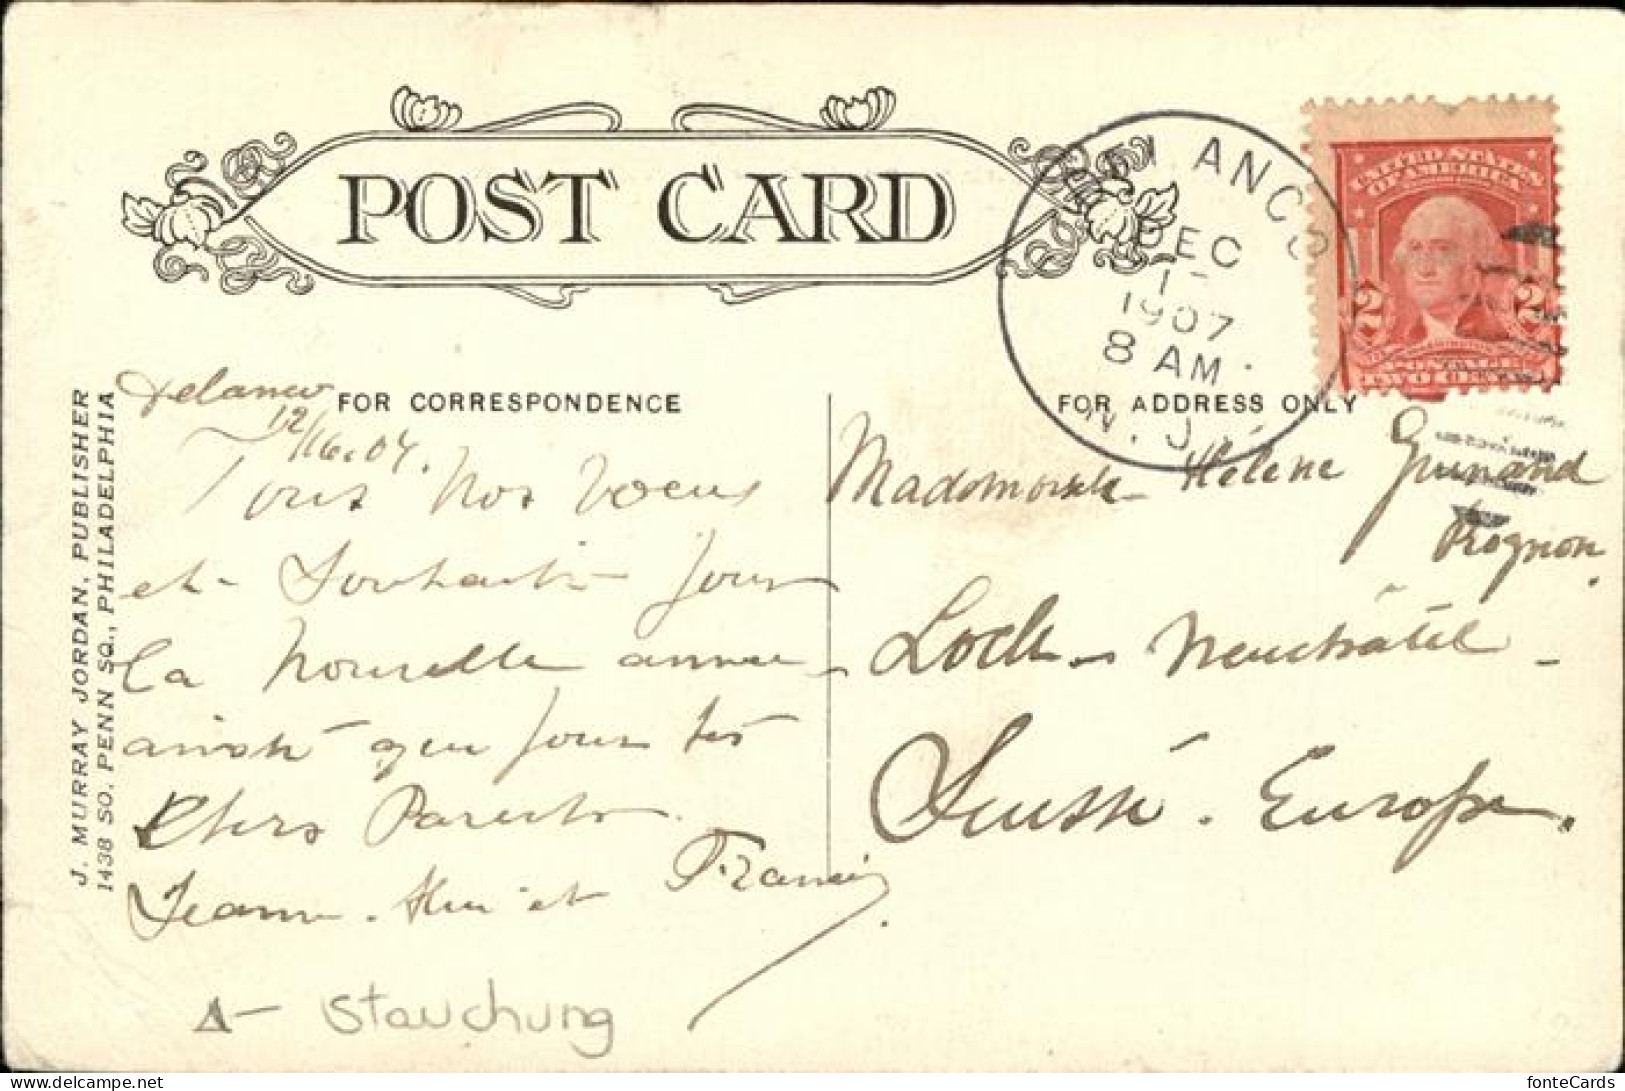 POST CARD
DELANCO
DEC
17
1907
8 AM.
N. J.
UNITED STATES
OF AMERICA
2 2
POSTAGE
TWO CENTS
J. MURRAY JORDAN, PUBLISHER
1438 SO. PENN SQ., PHILADELPHIA
FOR CORRESPONDENCE
FOR ADDRESS ONLY
Delanco
12/16.07.
Tous nos voeux
et souhaits pour
la nouvelle année
ainsi que pour tes
chers Parents.
Jeanne. et Francis
Mademoiselle Hélène
Rognon.
Locle Neuchâtel
Suisse. Europe.
A - Stauchung
fonteCards